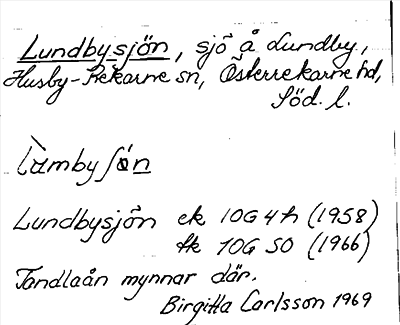 Lundbysjön, sjö å Lundby,
Husby-Rekarne sn, Österrekarne hd,
Söd. l.
Lamby sön
Lundbysjön ek 10G4h (1958)
tk 10G SO (1966)
Tandlaån mynnar där.
Birgitta Carlsson 1969